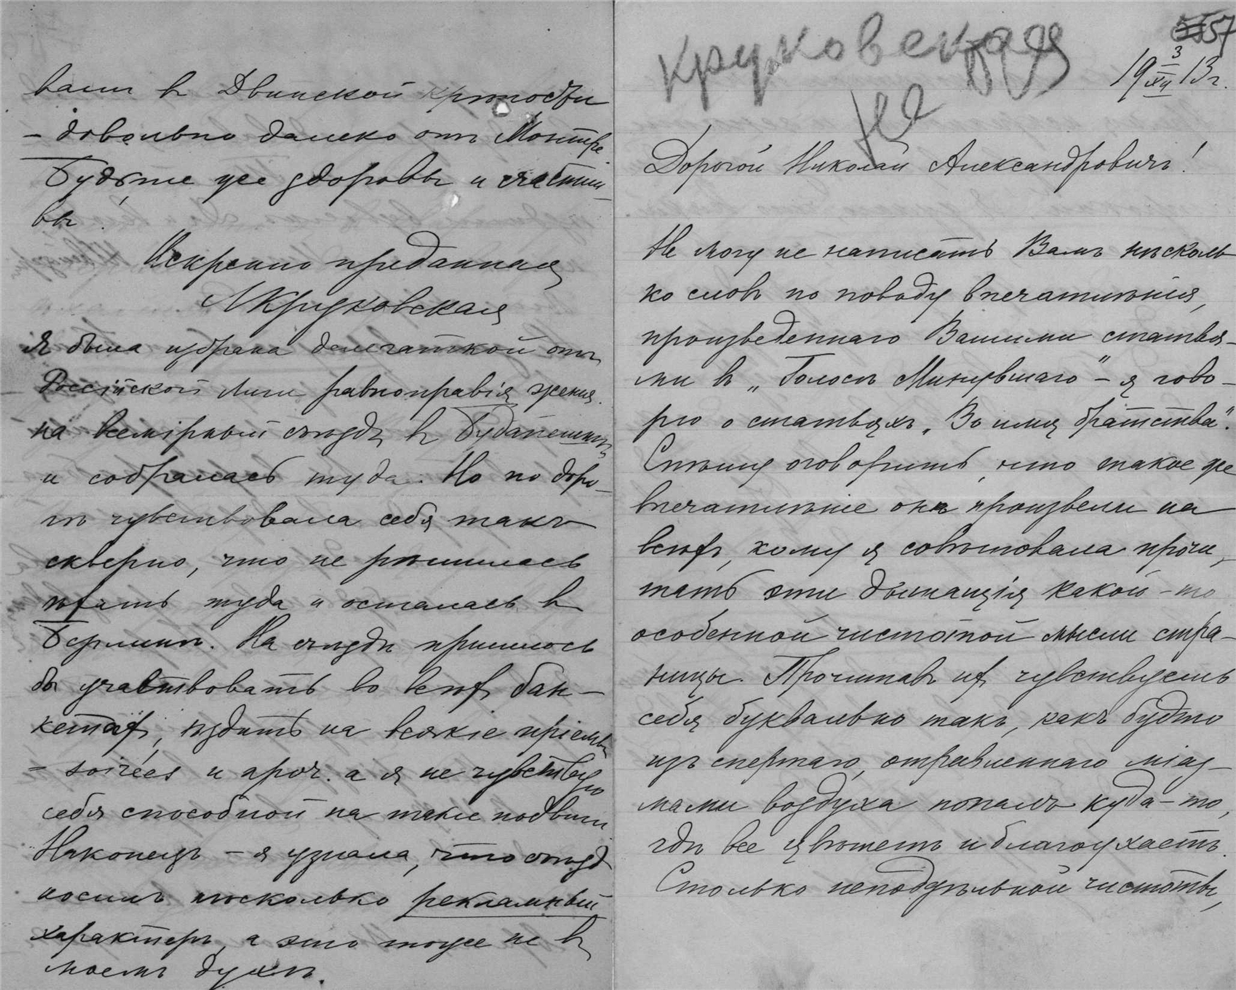 вали в Двинской крѣпости
– довольно далеко отъ Монтре.
Будьте же здоровы и счастли-
вы.
Искренно преданная
ЛКруковская
Я была избрана делегаткой отъ
Россійской Лиги равноправія женщ.
на всемірный съѣздъ в Будапештѣ
и собралась туда. Но по доро-
гѣ чувствовала себя такъ
скверно, что не рѣшилась
ѣхать туда и осталась в
Берлинѣ. На съѣздѣ пришлось
бы участвовать во всѣх бан-
кетах, ѣздить на всякіе пріемы
– soirées и проч. а я не чувствую
себя способной на такіе подвиги
Наконецъ – я узнала, что съѣзд
носилъ нѣсколько рекламный
характеръ, а это тоже не в
моемъ духѣ.
Круковская
57
19 3/XII 13 г.
Не
Дорогой Николай Александровичъ!
Не могу не написать Вамъ нѣсколь
ко словъ по поводу впечатлѣнія,
произведеннаго Вашими статья-
ми в „Голосѣ Минувшаго" – я гово-
рю о статьяхъ „Во имя братства".
Спѣшу оговорить, что такое же
впечатлѣніе онѣ произвели на
всѣх, кому я совѣтовала прочи-
тать эти дышащія какой-то
особенной чистотой мысли стра-
ницы. Прочитавъ их чувствуешь
себя буквально такъ, какъ будто
изъ спертаго, отравленнаго міаз-
мами воздуха попалъ куда-то,
гдѣ все цвѣтетъ и благоухаетъ.
Столько неподдѣльной чистоты,